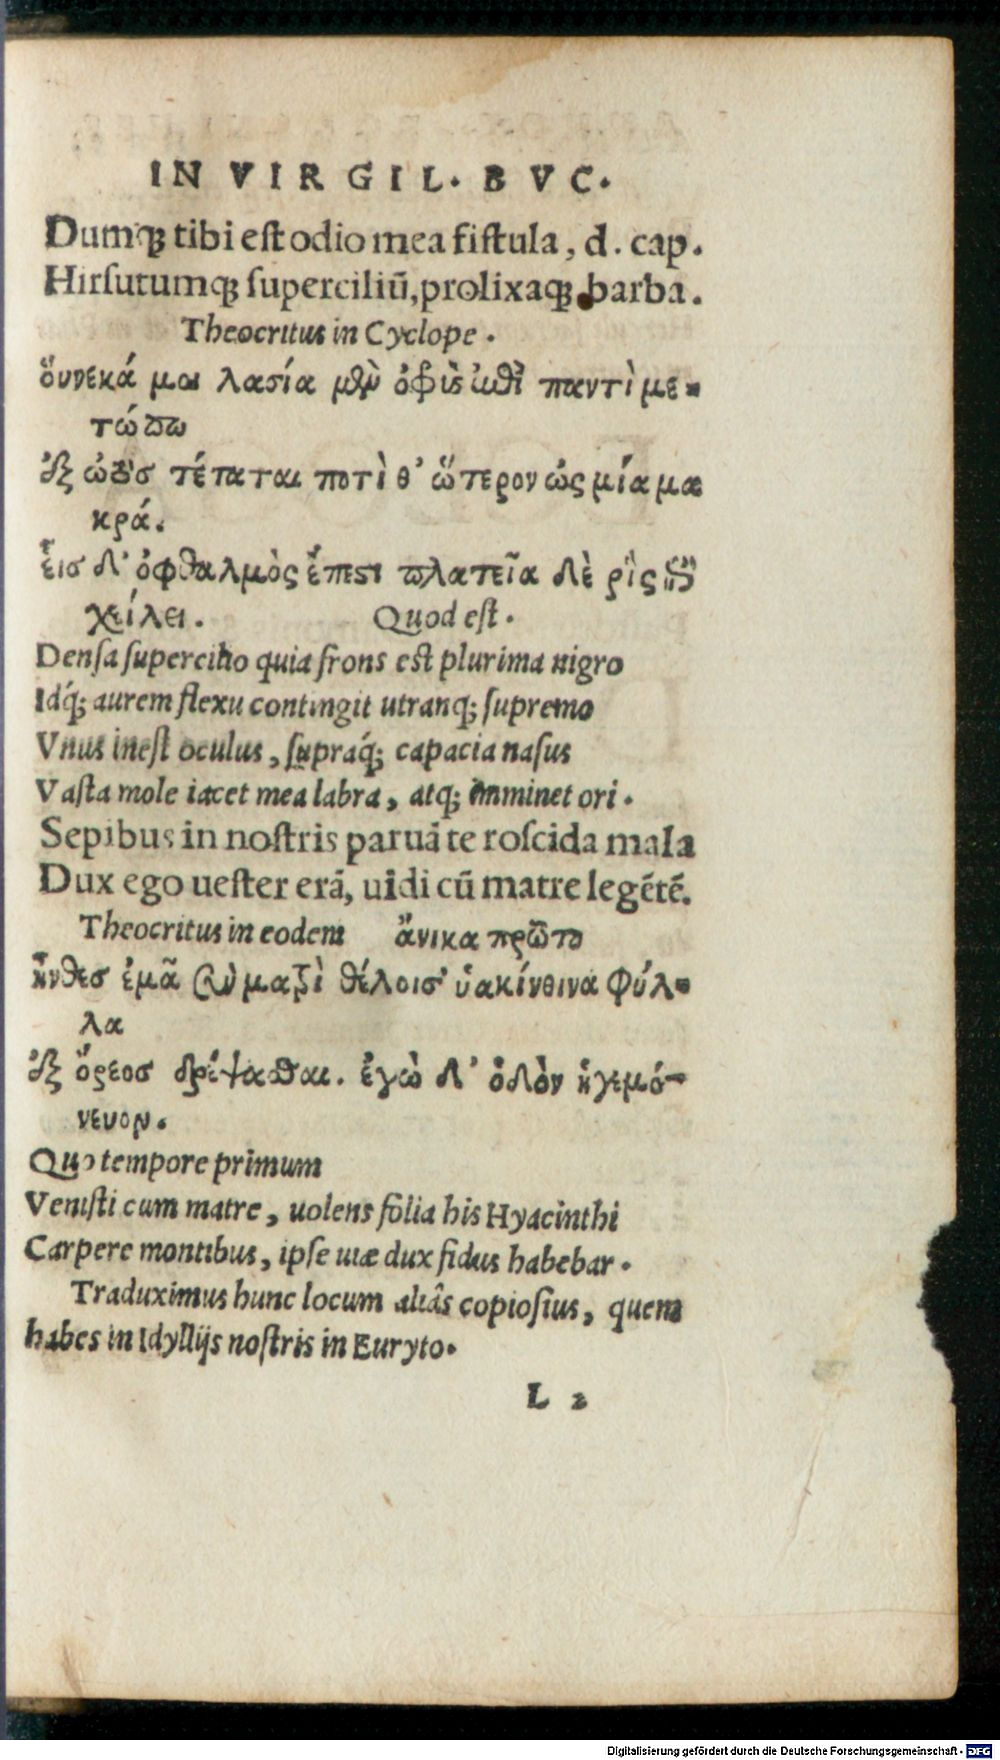 IN VIRGIL. BVC.
Dumq́ꝫ tibi est odio mea fistula, d. cap.
Hirsutumqꝫ superciliū, prolixaqꝫ barba.
Theocritus in Cyclope.
οὕνεκά μοι λασία μὲν ὀφρὺς ἐπὶ παντὶ με-
τώπω
ἐξ ὠτὸς τέταται ποτὶ θ' ὥτερον ὡς μία μα
κρά.
εἷς δ' ὀφθαλμὸς ἔπεστι πλατεῖα δὲ ῥὶς ἐπὶ
χείλει. Quod est.
Densa supercilio quia frons est plurima nigro
Idq́ꝫ aurem flexu contingit utranqꝫ supremo
Vnus inest oculus, supraq́ꝫ capacia nasus
Vasta mole iacet mea labra, atqꝫ imminet ori.
Sepibus in nostris paruā te roscida mala
Dux ego uester erā, uidi cū matre legētē.
Theocritus in eodem ἅνικα πρᾶτον
ἦνθες ἐμᾶ σὺν ματρὶ θέλοισ' ὑακίνθινα φύλ-
λα
ἐξ ὄρεος δρέψασθαι. ἐγὼ δ' ὁδὸν ἡγεμό-
νευον.
Quo tempore primum
Venisti cum matre, uolens folia his Hyacinthi
Carpere montibus, ipse uiæ dux fidus habebar.
Traduximus hunc locum aliâs copiosius, quem
habes in Idyllijs nostris in Euryto.
L 2
Digitalisierung gefördert durch die Deutsche Forschungsgemeinschaft - DFG